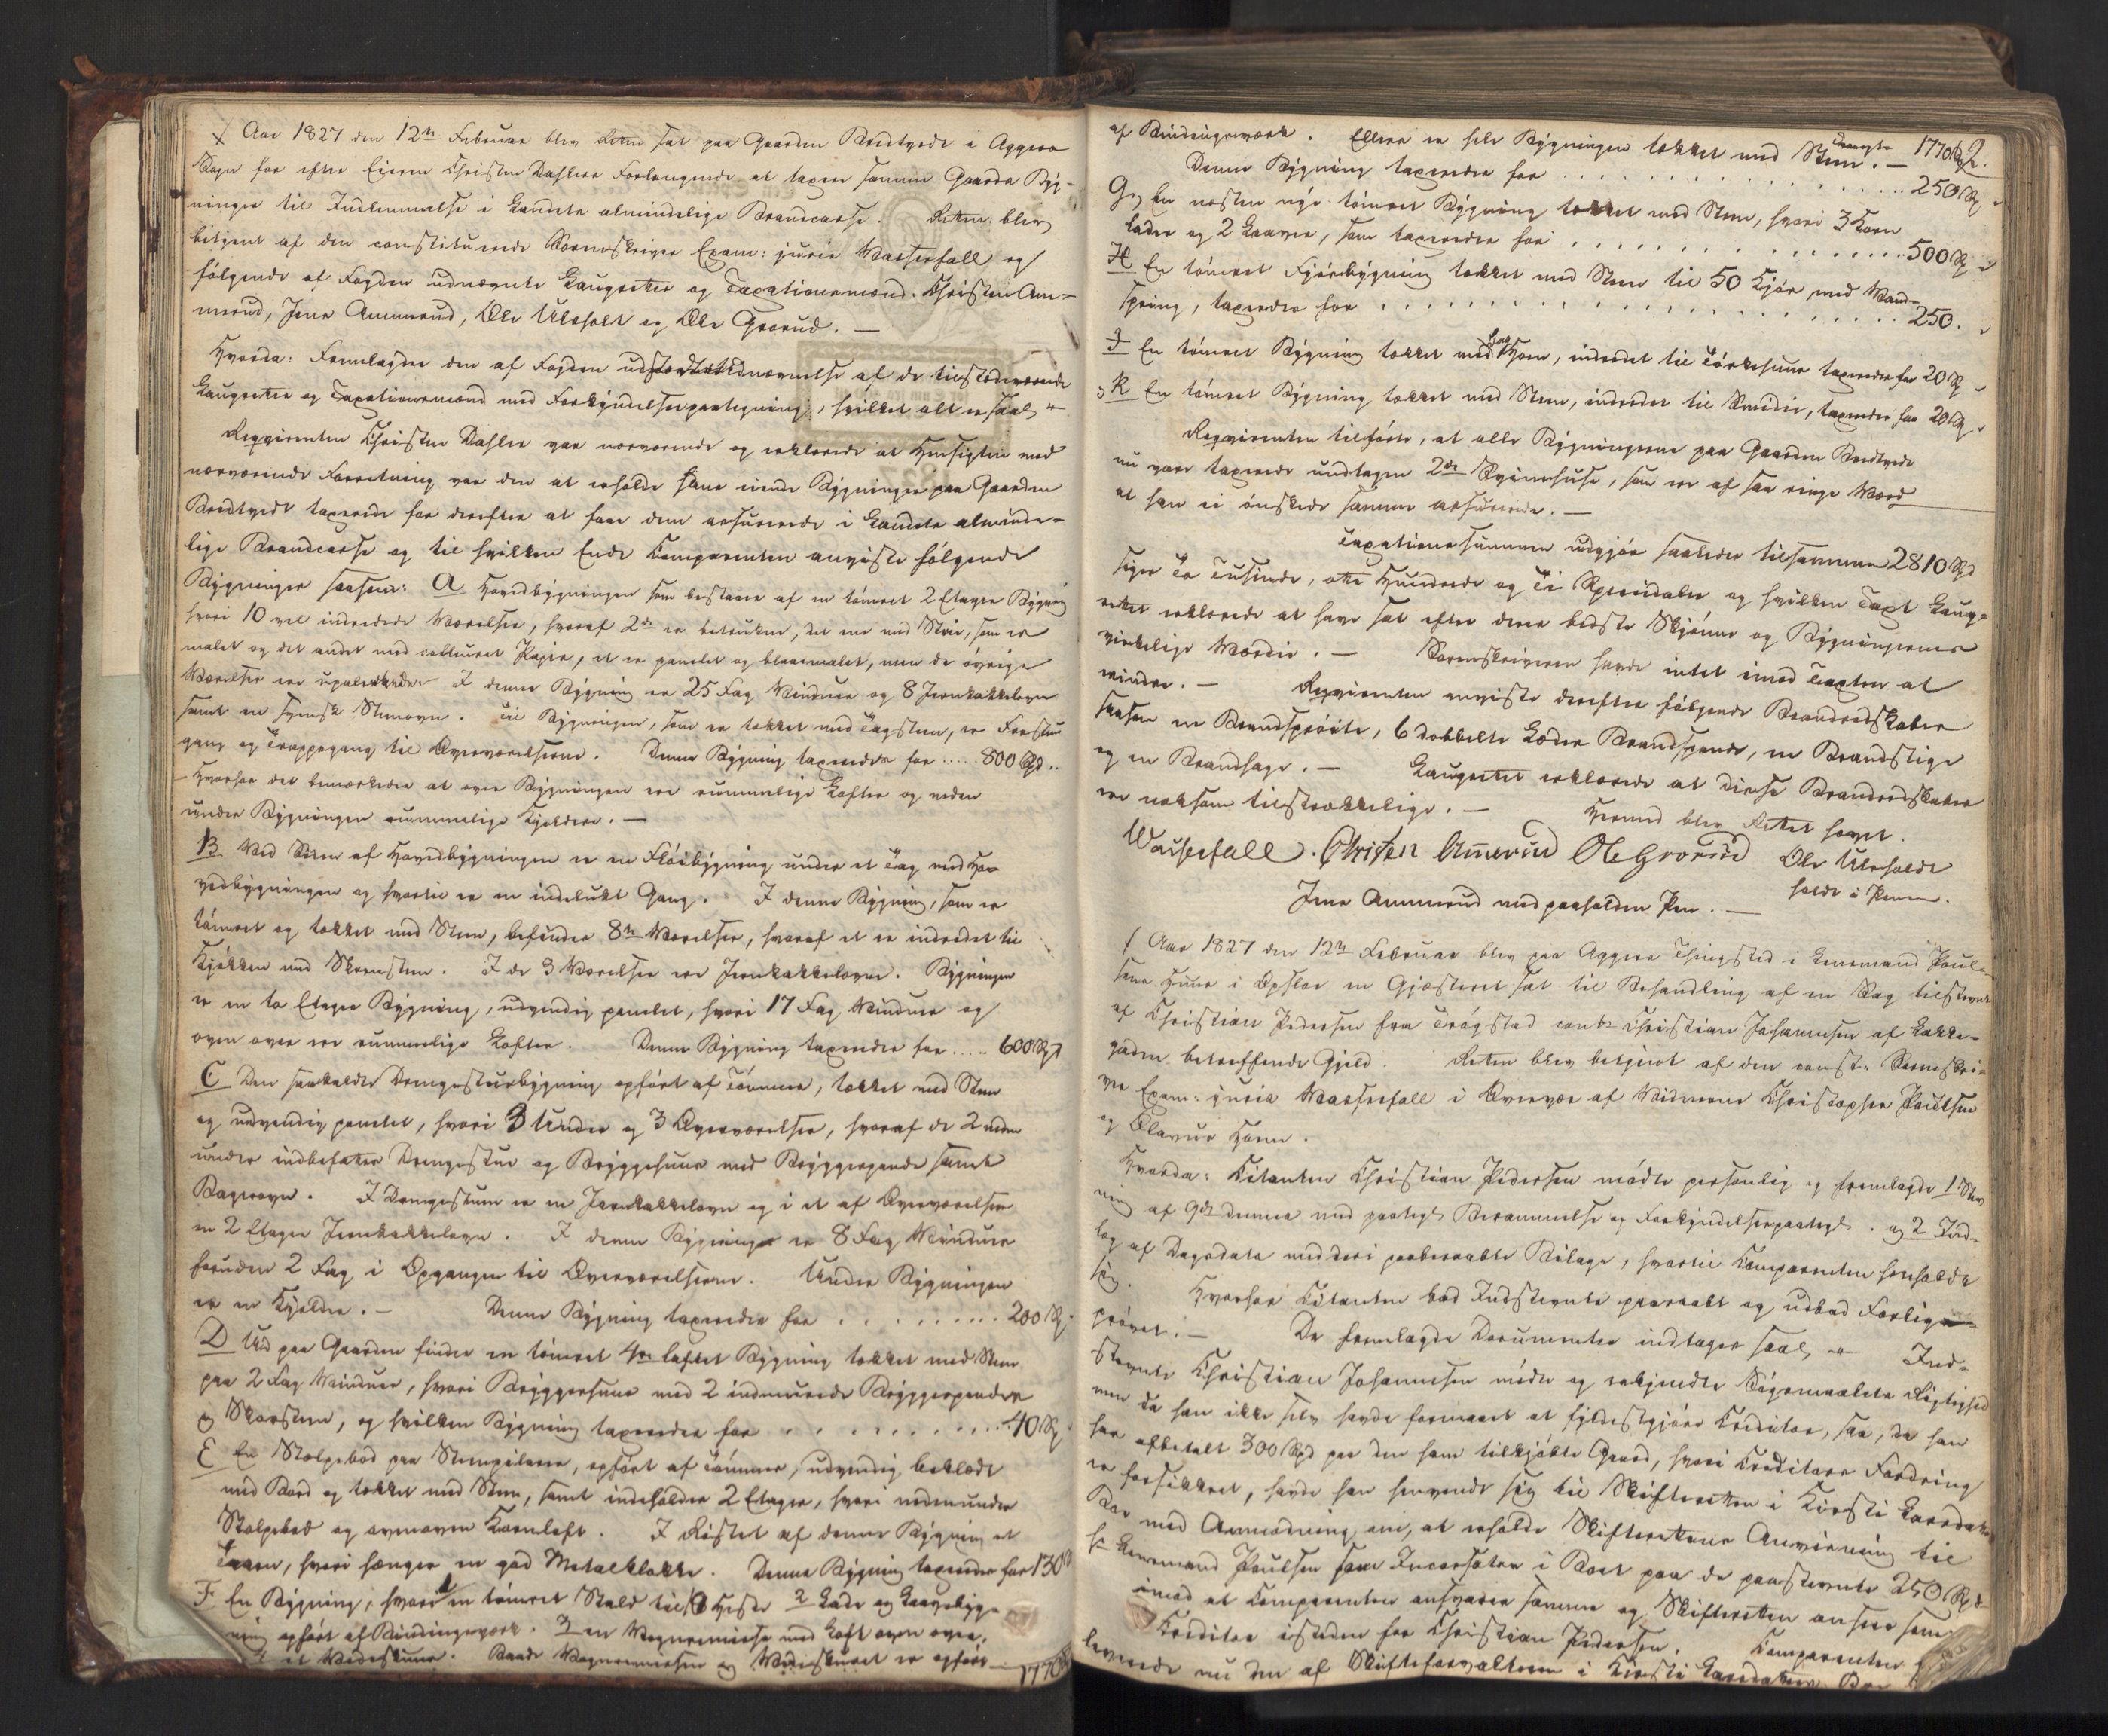 Aar 1827 den 12te Februar blev Retten sat paa Gaarden Bredtvedt i Aggers
Sogn for efter Eieren Christen Dahlers Forlangende at taxere samme Gaards Byg-
ninger til Indlemmelse i Landets almindelige Brandcasse. Retten blev
betjent af den constituerede Sorenskriver Exam: juris Wasserfall og
følgende af Fogden udnævnte Laugretter og Taxationsmænd. Christen Am-
merud, Jens Ammerud, Ole Ulsholt og Ole Grorud. —
Hvorda: Fremlagdes den af Fogden udnævnelse af de tilstedeværende
Laugretter og Taxationsmænd med Forkyndelsespaategning, hvilket alt er saal.
Reqvirenten Christen Dahler var nærværende og erklærede at Hensigten med
nærværende Forretning var den at erholde hans eiende Bygninger paa Gaarden
Bredtvedt taxerede for derefter at faae dem assurerede i Landets alminde-
lige Brandcasse og til hvilken Ende Comparenten anviste følgende
Bygninger saasom: A Hovedbygningen som bestaaer af en tømret 2 Etages Bygning
hvori 10 vel indredede Værelser, hvoraf 2de er betrukne, det ene med Strie, som er
malet og det andet med couleuret Papir, et er panelet og blaaemalet, men de øvrige
Værelser ere upalerede. I denne Bygning er 25 Fag Vinduer og 8 Jernkakkelovne
samt en svensk Steenovn. Til Bygningen, som er tækket med Tagsteen, er Forstue
gang og Trappegang til Overværelserne. Denne Bygning taxeredes for ..... 800 Spd..
— Hvorhos det bemærkedes at over Bygningen ere rummelige Lofter og neden
under Bygningen rummelige Kjeldere. —
B Ved Siden af Hovedbygningen er en Fløibygning under et Tag med Ho-
vedbygningen og hvortil er en indelukt Gang. I denne Bygning, som er
tømret og tækket med Steen, befindes 8te Værelser, hvoraf et er indredet til
Kjøkken med Skorsteen. I de 3 Værelser ere Jernkakkelovne. Bygningen
er en to Etages Bygning, udvendig panelet, hvori 17 Fag Vinduer og
oven over ere rummelige Lofter. Denne Bygning taxeredes for ..... 600 Spd
C Den saakaldte Drengestuebygning opført af Tømmer, tækket med Steen
og udvendig panelet, hvori 3 Under og 3 Overværelser, hvoraf de 2 neden
under indbefatter Drengestue og Bryggehuus med Bryggerpande samt
Bagerovn. I Drengestuen er en Jernkakkelovn og i et af Overværelserne
en 2 Etages Jernkakkelovn. I denne Bygning er 8 Fag Vinduer
foruden 2 Fag i Opgangen til Overværelserne. Under Bygningen
er en Kjelder. — Denne Bygning taxeredes for . . . . . . . . . 200 Sp.
D Ud paa Gaarden findes en tømret Bygning tækket med Steen
paa 2 Fag Vinduer, hvori Bryggerhuus med 2 indmurede Bryggerpander
og Skorsteen, og hvilken Bygning taxeredes for . . . . . . . . . 40 Sp.
E En Stolpebod paa Steenpilarer, opført af Tømmer, udvendig beklædt
med Bord og tækket med Steen, samt indeholder 2 Etager, hvori nedenunder
Stolpebod og ovenover Kornloft. I Røstet af denne Bygning et
Taarn, hvori hænger en god Metalklokke. Denne Bygning taxeredes for 130
F En Bygning, hvori en tømret Stald til Heste 2 Lade og Laavebyg-
ning opført af Bindingsværk. 3 en Vognremisse med Loft oven over,
et Vedeskuur. Baade Vognremissen og Vedeskuret er opført 1770
af Bindingsværk. Ellers er hele Bygningen tækket med Steen. — Transp. 1770 Sp 2.
Denne Bygning taxeredes for . . . . . . . . . 250 Sp
G, En næsten nye tømret Bygning tækket med Steen, hvori 3 Korn
lader og 2 Laaver, som taxeredes for . . . . . . . . . 500 Sp
H En tømret Fjøsbygning tækket med Steen til 50 Kjør med Vand-
spring, taxeredes for . . . . . . . . . 250.
I En tømret Bygning tækket med, indredet til Tørkehuus taxeredes for 20 Sp
K En tømret Bygning tækket med Steen, indredet til Smidie, taxeredes for 20 Sp
Reqvirenten tilførte, at alle Bygningerne paa Gaarden Bredtvedt
nu vare taxerede undtagen 2de Sviinehuse, som ere af saa ringe Værd
at han ei ønskede samme assurerede. —
Taxationssummen udgjør saaledes tilsammen 2810 Spd
siger To Tusinde, otte Hundrede og Ti Speciedaler og hvilken Taxt Laug-
rettet erklærede at have sat efter deres bedste Skjønne og Bygningernes
virkelige Værdie. — Sorenskriveren havde intet imod Taxten at
erindre. — Reqvirenten anviste derefter følgende Brandredskaber
saasom en Brandsprøite, 6 dobbelte Læder Brandspande, en Brandstige
og en Brandhage. — Laugrettet erklærede at disse Brandredskaber
ere noksom tilstrækkelige. — Hermed blev Rettet hævet.
Wasserfall. Christen Amerud Ole Grorud Ole Ulsholdt
holdt i Pennen.
Jens Ammerud med paaholden Pen. —
Aar 1827 den 12te Februar blev paa Aggers Thingsted i Lensmand Poul-
sens Huus i Opslo en Gjæsteret sat til Behandling af en Sag tilstevnet
af Christian Pedersen fra Trøgstad contr Christian Johannesen af Lakke-
gaden betreffende Gjeld. Retten blev betjent af den const. Sorenskri-
ver Exam: juris Wasserfall i Overvær af Vidnerne Christopher Poulsen
og Olavus Horn.
Hvorda: Citanten Christian Pedersen mødte personlig og fremlagde 1 Stev
ning af 9de dennes med paategt Berammelse og Forkyndelsespaategt. og 2 Ind-
læg af Dagsdato med deri paaberaabte Bilage, hvortil Comparenten henholdt
sig. Hvorhos Citanten bad Indstevnte paaraabt og udbad Forlig
prøvet. — De fremlagde Documenter indtages saal. Ind-
stevnte Christian Johannesen mødte og erkjendte Søgemaalets Rigtighed
men da han ikke selv havde formaaet at fyldestgjøre Creditor, saa, da han
har afbetalt 300 Spd paa den ham tilkjøbte Gaard, hvori Creditors Fordring
er forsikkret, havde han henvendt sig til Skifteretten i Kirsti Larsdatters
Boe med Anmodning om, at erholde Skifterettens Anviisning til
Hr Lensmand Poulsen som Incassator i Boet paa de paastevnte 250 Spd
imod at Comparenten ansvarer samme og Skifteretten ansees som
Creditor isteden for Christian Pedersen. Comparenten
leverede nu den af Skifteforvalteren i Kirsti Larsdatters Boe